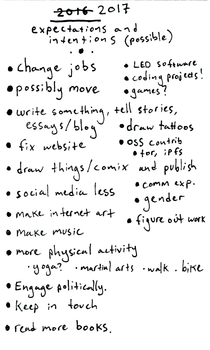 2016 2017
expectations and
intentions (possible)
• change jobs
• possibly move
• write something, tell stories,
essays/blog
• fix website
• draw things/comix and publish
• social media less
• make internet art
• make music
• more physical activity
• yoga? • martial arts • walk • bike
• Engage politically.
• Keep in touch
• read more books.
• LED software
• coding projects!
• games?
• draw tattoos
• OSS contrib
• tor, ipfs
• comm exp.
• gender
• figure out work